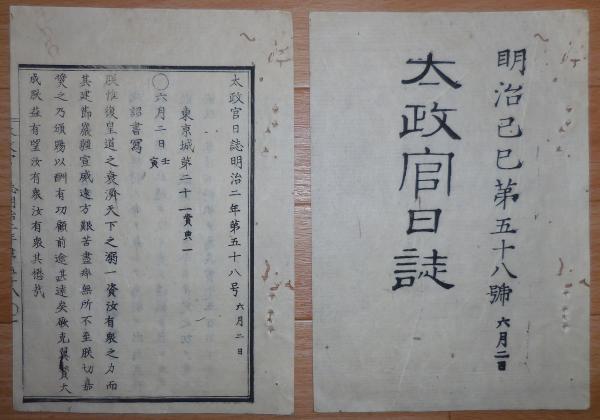 明治己巳第五十八號 六月二日
太政官日誌
太政官日誌明治二年第五十八号 六月二日
東京城第二十一 賞典一
〇六月二日 壬寅
詔書寫
朕惟復皇道之衰濟天下之溺一資汝有衆之力而
其建節巖疆宣威遠方艱苦盡瘁無所不至朕切嘉
奬之乃頒賜以酬有功顧前途甚遠矣厥克翼贊大
成朕益有望汝有衆汝有衆其懋哉